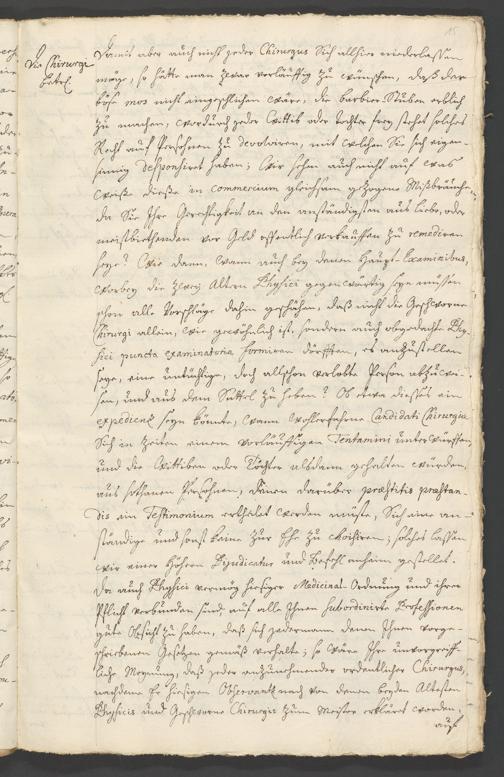 15
Die Chirurgi
betref.
Damit aber auch nicht jeder Chirurgus sich allhier niederlassen
möge, so hätte man zwar vorläuffig zu wünschen, daß der
böse mos nicht eingeschlichen wäre, die barbier Stuben erblich
zu machen, wordurch jeder Wittib oder Tochter frey stehet solches
Recht auf Persohnen zu devolviren, mit welchen Sie sich eigen-
sinnig desponsiret haben; Wir sehen auch nicht auf was
weiße dieße in commercium gleichsam gezogene Mißbräuche
da Sie Ihre Gerechtigkeit an den anständigsten aus liebe, oder
meistbiethenden vor Geld offentlich verkauffen zu remediren
seye? Wie dann, wann auch bey denen Haupt-Examinibus,
worbey die zwey Altern Physici gegenwärtig seyn müssen
schon alle Vorschläge dahin geschähen, daß nicht die Geschworne
Chirurgi allein, wie gewöhnlich ist, sondern auch obgedachte Phy-
sici puncta examinatoria formiren dörfften, es anzustellen
seye, eine untüchtige, doch allschon verlobte Person abzuwei-
sen, und aus dem Sattel zu heben? Ob etwa dieses ein
expediens seyn könte, wann wohlerfahrne Candidati Chirurgiæ
Sich in Zeiten einem vorläuffigen Tentamini unterwerffen,
und die Wittiben oder Töchter alsdann gehalten würden,
aus sothanen Persohnen, denen darüber præstitis præstan-
dis ein Testimonium ertheilet werden müste, Sich eine an-
ständige und sonst keine zur Ehe zu choisiren; solches lassen
wir einer höhern Dijudicatur und Befehl anheim gestellet.
Da auch Physici vermög hiesiger Medicinal-Ordnung und ihrer
Pflicht verbunden sind auf alle Ihnen subordinirte Professionen
gute Obsicht zu haben, daß sich jedermann denen Ihnen vorge-
schriebenen Gesetzen gemäß verhalte; so wäre Ihre unvorgreiff-
liche Meynung, daß jeder anzunehmender ordentlicher Chirurgus,
nachdeme Er hiesigen Observantz nach von denen beyden Altesten
Physicis und Geschworne Chirurgis zum Meister erkläret worden,
auch